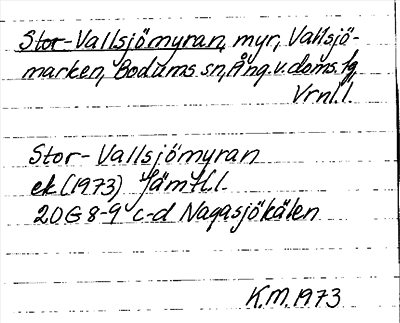 Stor-Vallsjömyran, myr, Vallsjö-
marken, Bodums sn, Ång. v. doms. lg,
Vrnl. l.
Stor-Vallsjömyran
ek (1973) Jämtl. l.
20G 8-9 c-d Nagasjökälen
K.M. 1973